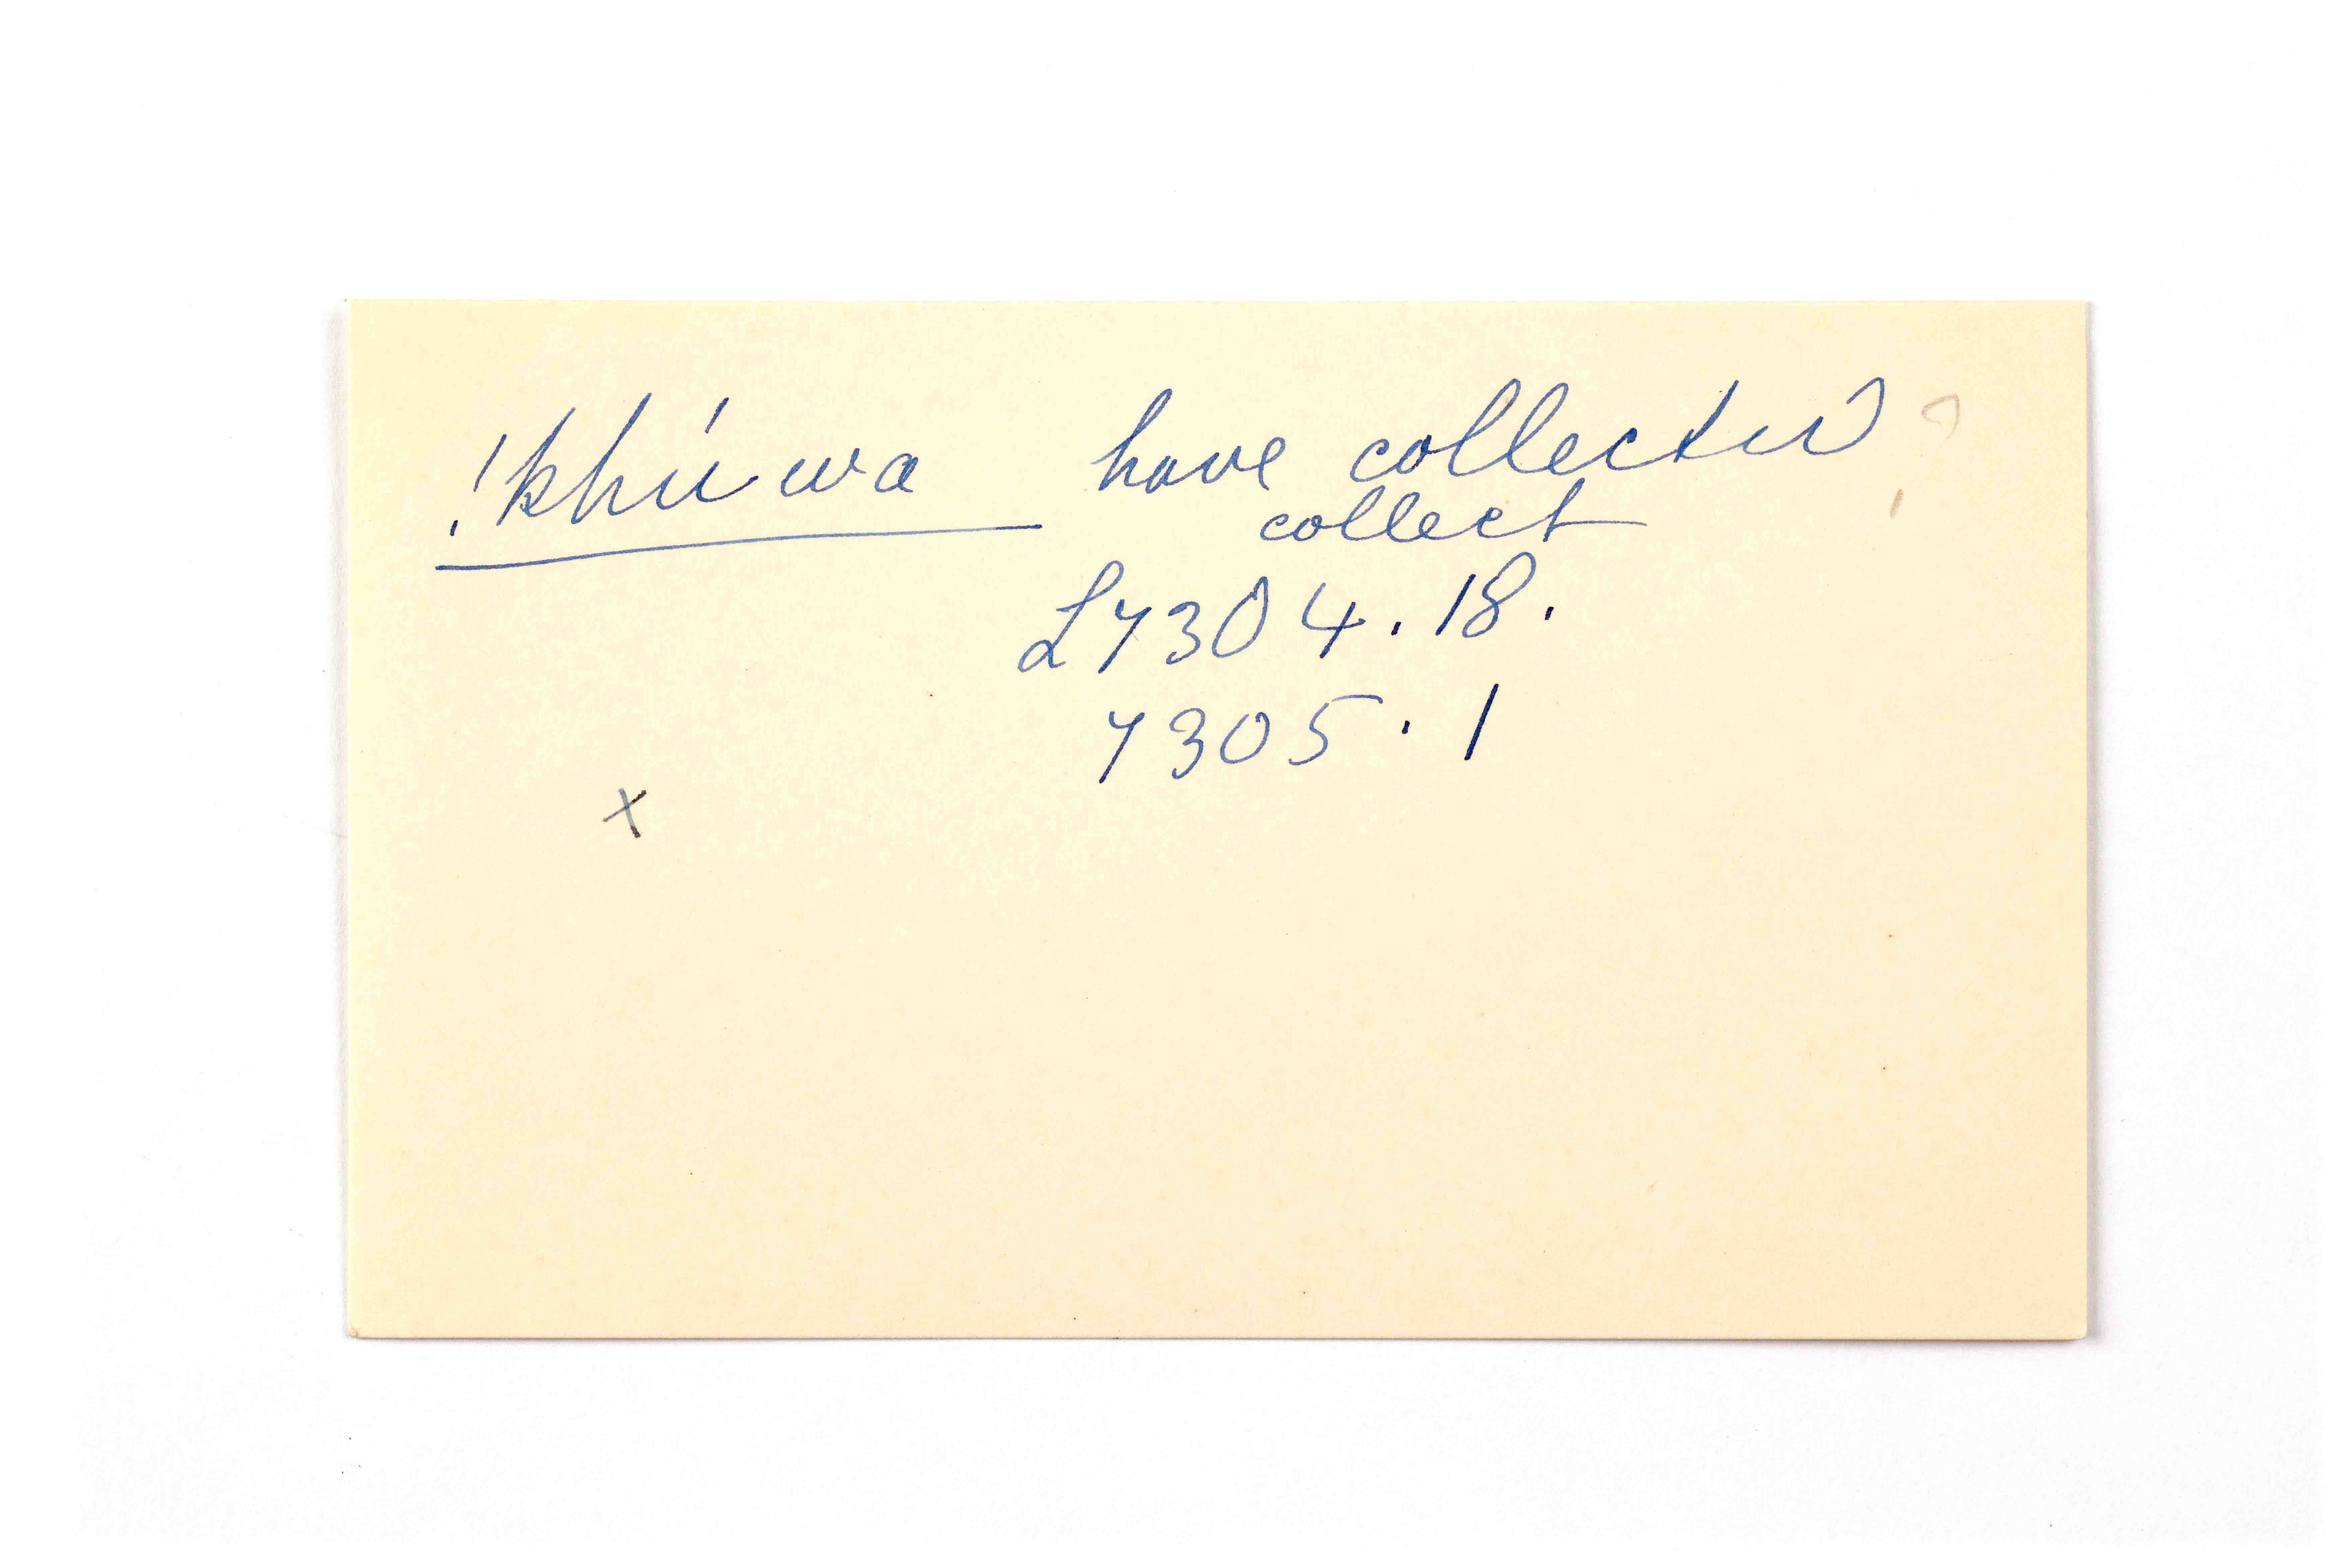 !khú wa have collected ?
collect
L7304.18.
7305.1
x